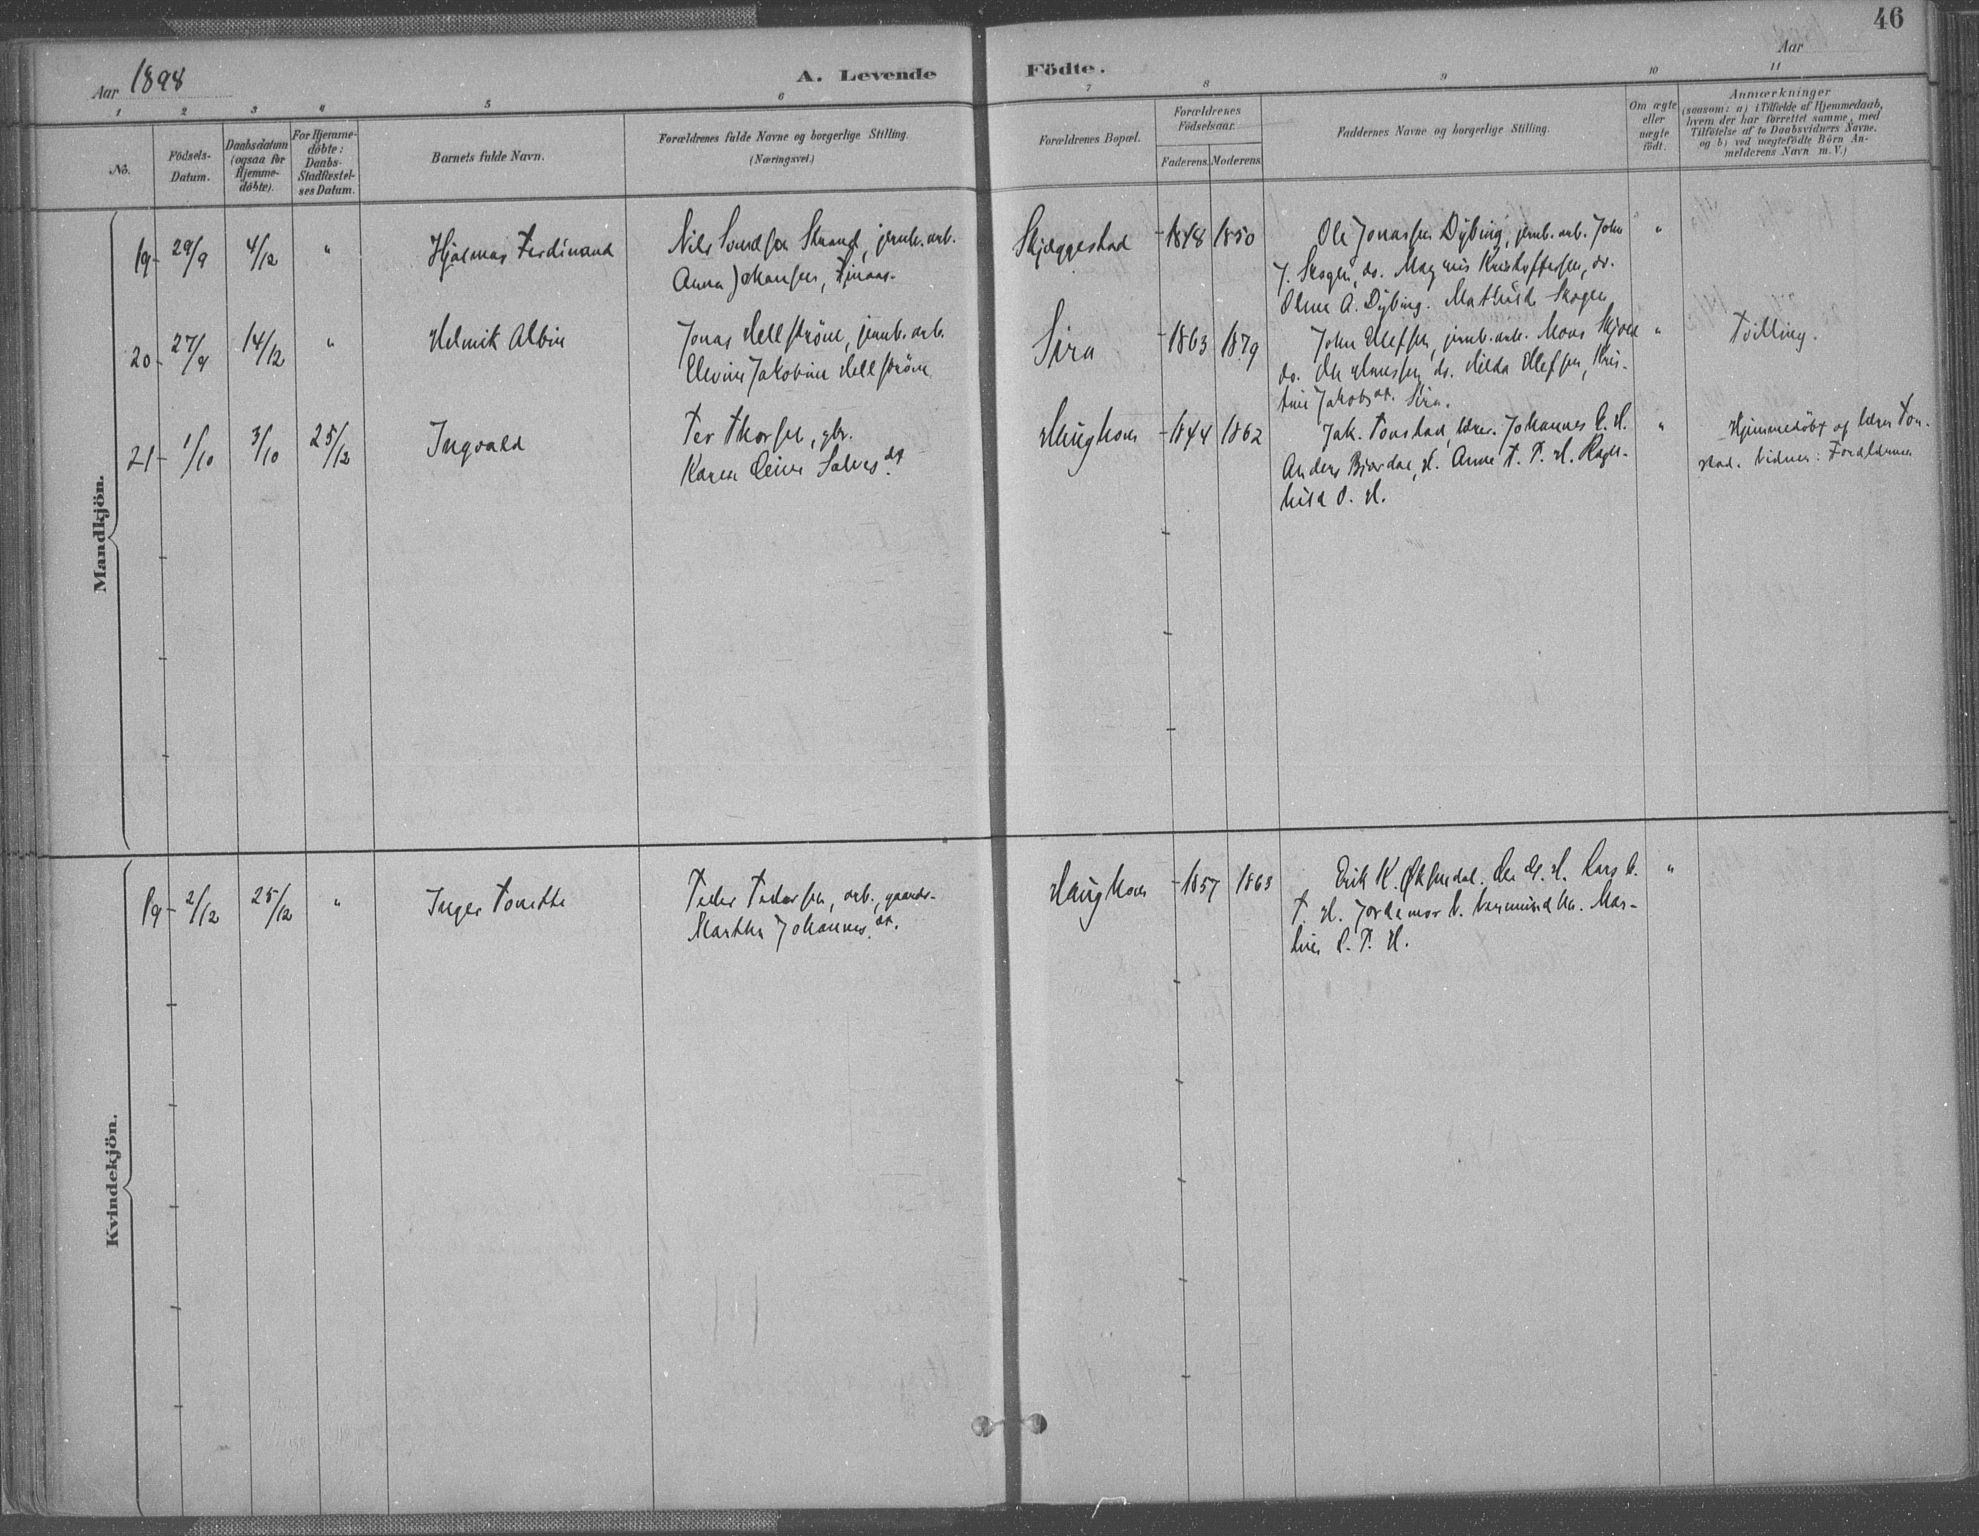 46
Aar 1898
A. Levende Födte.
Aar
1 2 3 4 5 6 7 8 9 10 11
No.
Födsels-Datum.
Daabsdatum (ogsaa for Hjemme-döbte).
For Hjemme-döbte: Daabs-Stadfæstel-ses Datum.
Barnets fulde Navn.
Forældrenes fulde Navne og borgerlige Stilling.
(Næringsvei.)
Forældrenes Bopæl.
Forældrenes Födselsaar.
Faderens. Moderens.
Faddernes Navne og borgerlige Stilling.
Om ægte eller uægte födt.
Anmærkninger
(saasom: a) i Tilfælde af Hjemmedaab,
hvem der har forrettet samme, med
Tilföielse af to Daabsvidners Navne.
og b) ved uægtefödte Börn An-
melderens Navn m. V.)
Mandkjön.
19 29/9 4/12 " Hjalmar Ferdinand Nils Strand, jernb. arb. Skjeggestad 1848 1850 Ole Jonassen Dybing, jernb. arb. John "
Anna Johansen, J. Skogen, do. Magnus Kristoffersen, do.
A. Dybing. Mathilde Skogen
20 27/9 14/12 " Helmik Albin Jonas Hellström, jernb. arb. Sira 1863 1879 John Olefsen, jernb. arb. Mons " Tvilling.
Jakobine Hellström do. do. Hilda Olefsen, Kris-
tine Jakobs dt. Sira.
21 1/10 3/10 25/12 Ingvald Per Thorsen, gbr. Haughom 1844 1862 Jak. Tonstad, lærer. Johannes H. " Hjemmedöbt af lærer Ton-
Karen Salves dt. Anders Bjordal, H. Anne T. P. H. Ragn- stad. Vidner: Forældrene
hild O. H.
Kvindekjön.
19 2/12 25/12 " Inger Tonette Peder Pedersen, arb., Haughom 1857 1863 Erik K. Øksendal. H. Lars "
Martha Johannes dt. T. H. Jordemor Mar-
P. H.